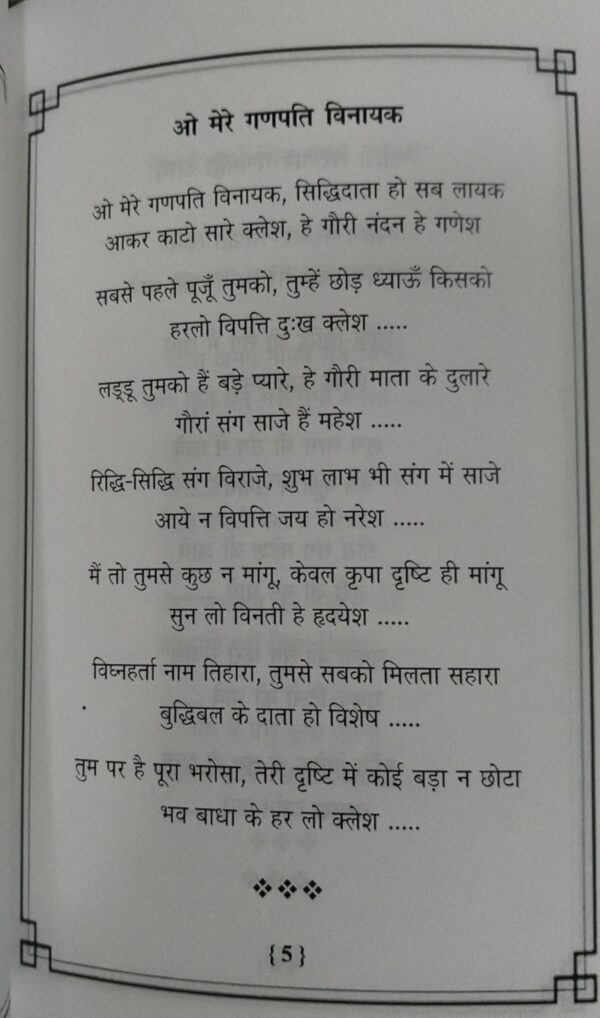 ओ मेरे गणपति विनायक
ओ मेरे गणपति विनायक, सिद्धिदाता हो सब लायक
आकर काटो सारे क्लेश, हे गौरी नंदन हे गणेश
सबसे पहले पूजूँ तुमको, तुम्हें छोड़ ध्याऊँ किसको
हरलो विपत्ति दुःख क्लेश .....
लड्डू तुमको हैं बड़े प्यारे, हे गौरी माता के दुलारे
गौरां संग साजे हैं महेश .....
रिद्धि-सिद्धि संग विराजे, शुभ लाभ भी संग में साजे
आये न विपत्ति जय हो नरेश .....
मैं तो तुमसे कुछ न मांगू, केवल कृपा दृष्टि ही मांगू
सुन लो विनती हे हृदयेश .....
विघ्नहर्ता नाम तिहारा, तुमसे सबको मिलता सहारा
बुद्धिबल के दाता हो विशेष .....
तुम पर है पूरा भरोसा, तेरी दृष्टि में कोई बड़ा न छोटा
भव बाधा के हर लो क्लेश .....
{5}